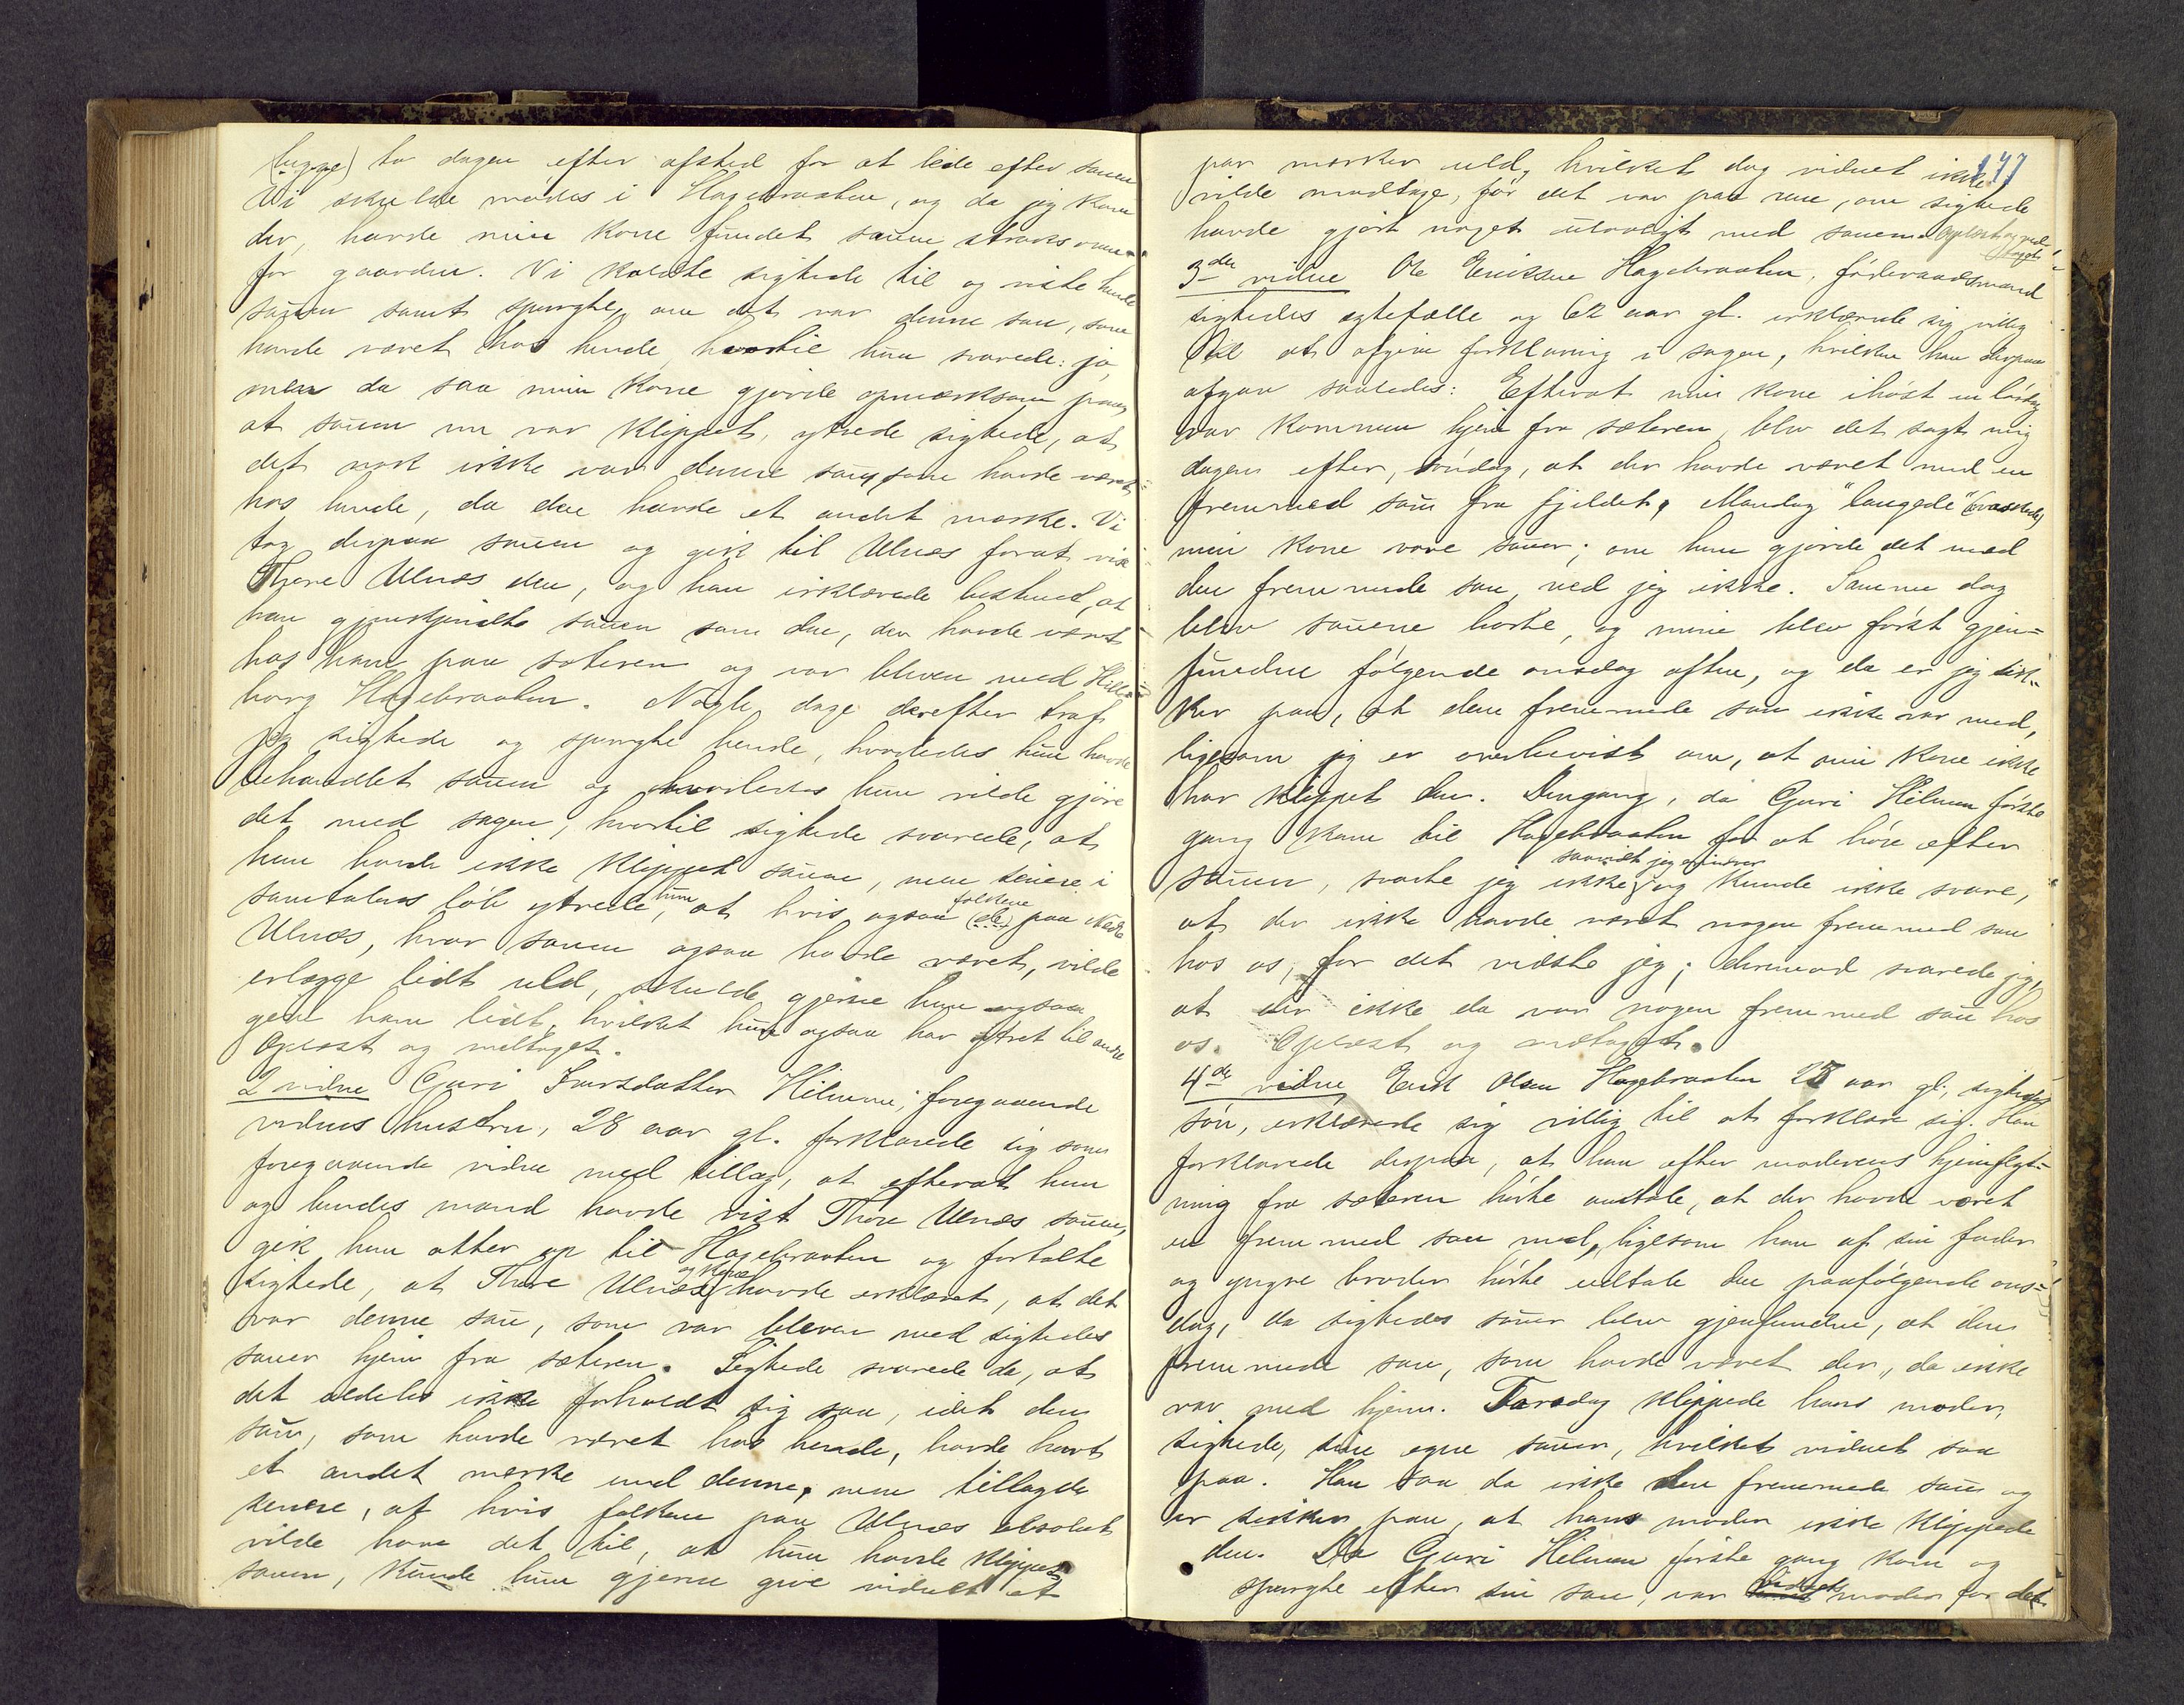 (begge) to dagen efter afsted for at lede efter sauen
Vi skulde mødes i Hagebraaten, og da jeg kom
der, havde min kone fundet sauen straks oven-
for gaarden. Vi kaldte sigtede til og viste hende
sauen samt spurgte, om det var denne sau, som
havde været hos hende, hvortil hun svarede: ja,
men da saa min kone gjorde opmerksom paa,
at sauen nu var klippet, ytrede sigtede, at
det nok ikke var denne sau, som havde været
hos hende, da den havde et andet merke. Vi
tog derpaa sauen og gik til Ulnæs forat vise
Thore Ulnæs den, og han erklærede bestemt, at
han gjenkjendte sauen som den, der havde været
hos ham paa sæteren og var bleven med Hille-
borg Hagebraaten. Nogle dage derefter traf
jeg sigtede og spurgte hende, hvorledes hun havde
behandlet sauen og hvorledes hun vilde gjøre
det med sagen, hvortil sigtede svarede, at
hun havde ikke klippet sauen, men senere i
samtalens løb ytrede hun, at hvis ogsaa (de) folkene paa Nedre
Ulnæs, hvor sauen ogsaa havde været, vilde
erlægge lidt uld, skulde gjerne hun ogsaa
give ham lidt, hvilket hun ogsaa har ytret til andre
Oplæst og vedtaget.
2 vidne Guri Iversdatter Hilmen, foregaaende
vidnes hustru, 28 aar gl. forklarede sig som
foregaaende vidne med tillæg, at efterat hun
og hendes mand havde vist Thore Ulnæs sauen,
gik hun atter op til Hagebraaten og fortalte
sigtede, at Thore Ulnæs havde erklæret, at det
var denne sau, som var bleven med sigtedes
sauer hjem fra sæteren. Sigtede svarede da, at
det aldeles ikke forholdt sig saa, idet den
sau, som havde været hos hende, havde havt
et andet merke end denne, men tillagde
senere, at hvis folkene paa Ulnæs absolut
vilde have det til, at hun havde klippet
sauen, kunde hun gjerne give vidnet et
177
par merker uld, hvilket dog vidnet ikke
vilde modtage, før det var paa rene, om sigtede
havde gjort noget ulovligt med sauen. Oplæst og ved-
taget.
3de vidne Ole Eriksen Hagebraaten, føderaadsmand
sigtedes egtefælle og 62 aar gl. erklærede sig villig
til at afgive forklaring i sagen, hvilken han derpaa
afgav saaledes: Efterat min kone ihøst en lørdag
var kommen hjem fra sæteren, blev det sagt mig
dagen efter, søndag, at der havde været med en
fremmed sau fra fjeldet, Mandag "laugede" (vaskede)
min kone vore sauer; om hun gjorde det med
den fremmede sau, ved jeg ikke. Samme dag
blev sauene borte, og mine blev først gjen-
fundne følgende onsdag aften, og da er jeg sik-
ker paa, at den fremmede sau ikke var med,
ligesom jeg er overbevist om, at min kone ikke
har klippet den. Dengang, da Guri Hilmen første
gang kom til Hagebraaten for at høre efter
sauen, svarte jeg ikke, saavidt jeg erindrer og kunde ikke svare,
at der ikke havde været nogen fremmed sau
hos os, for det vidste jeg; derimod svarede jeg,
at der ikke da var nogen fremmed sau hos
os. Oplæst og vedtaget.
4de vidne Erik Olsen Hagebraaten 25 aar gl, sigtedes
søn, erklærede sig villig til at forklare sig. Han
forklarede derpaa, at han efter moderens hjemflyt-
ning fra sæteren hørte omtale, at der havde været
en fremmed sau med, ligesom han af sin fader
og yngre broder hørte udtale den paafølgende ons-
dag, da sigtedes sauer blev gjenfundne, at den
fremmede sau, som havde været der, da ikke
var med hjem. Torsdag klippede hans moder,
sigtede, sine egne sauer, hvilket vidnet saa
paa. Han saa da ikke den fremmede sau og
er sikker paa, at hans moder ikke klippede
den. Da Guri Hilmen første gang kom og
spurgte efter sin sau, var vidnets moder for det